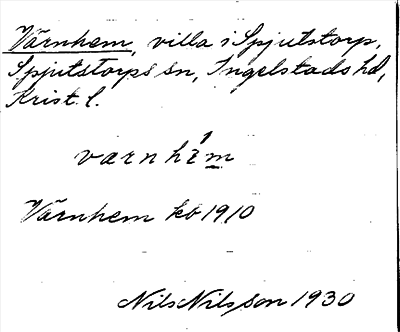 Värnhem, villa i Spjutstorp,
Spjutstorps sn, Ingelstads hd,
Krist l.
Värnhem kb 1910
Nils Nilsson 1930